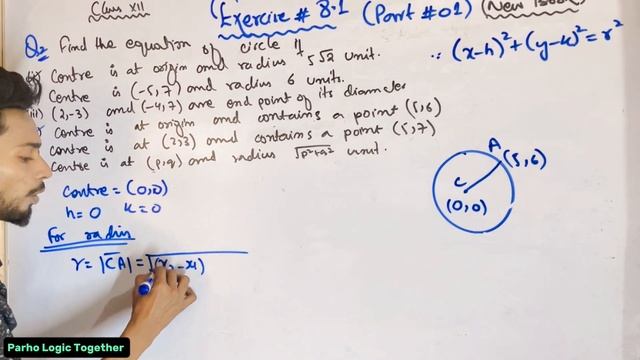 Class XII
(Exercise # 8.1 (Part # 01) (New Book)
Q2 Find the equation of circle if
Centre is at origin and radius 5√2 unit.
Centre is (-5,7) and radius 6 units.
iii) (2,-3) and (-4,7) are end point of its diameter
Centre is at origin and contains a point (5,6)
Centre is at (2,3) and contains a point (5,7)
Centre is at (p,q) and radius √p²+q² unit.
∵ (x-h)²+(y-k)²=r²
Centre = (0,0)
h=0 k=0
For radius
r = |CA| = √(x₂-x₁)
A
(5,6)
C
(0,0)
Parho Logic Together